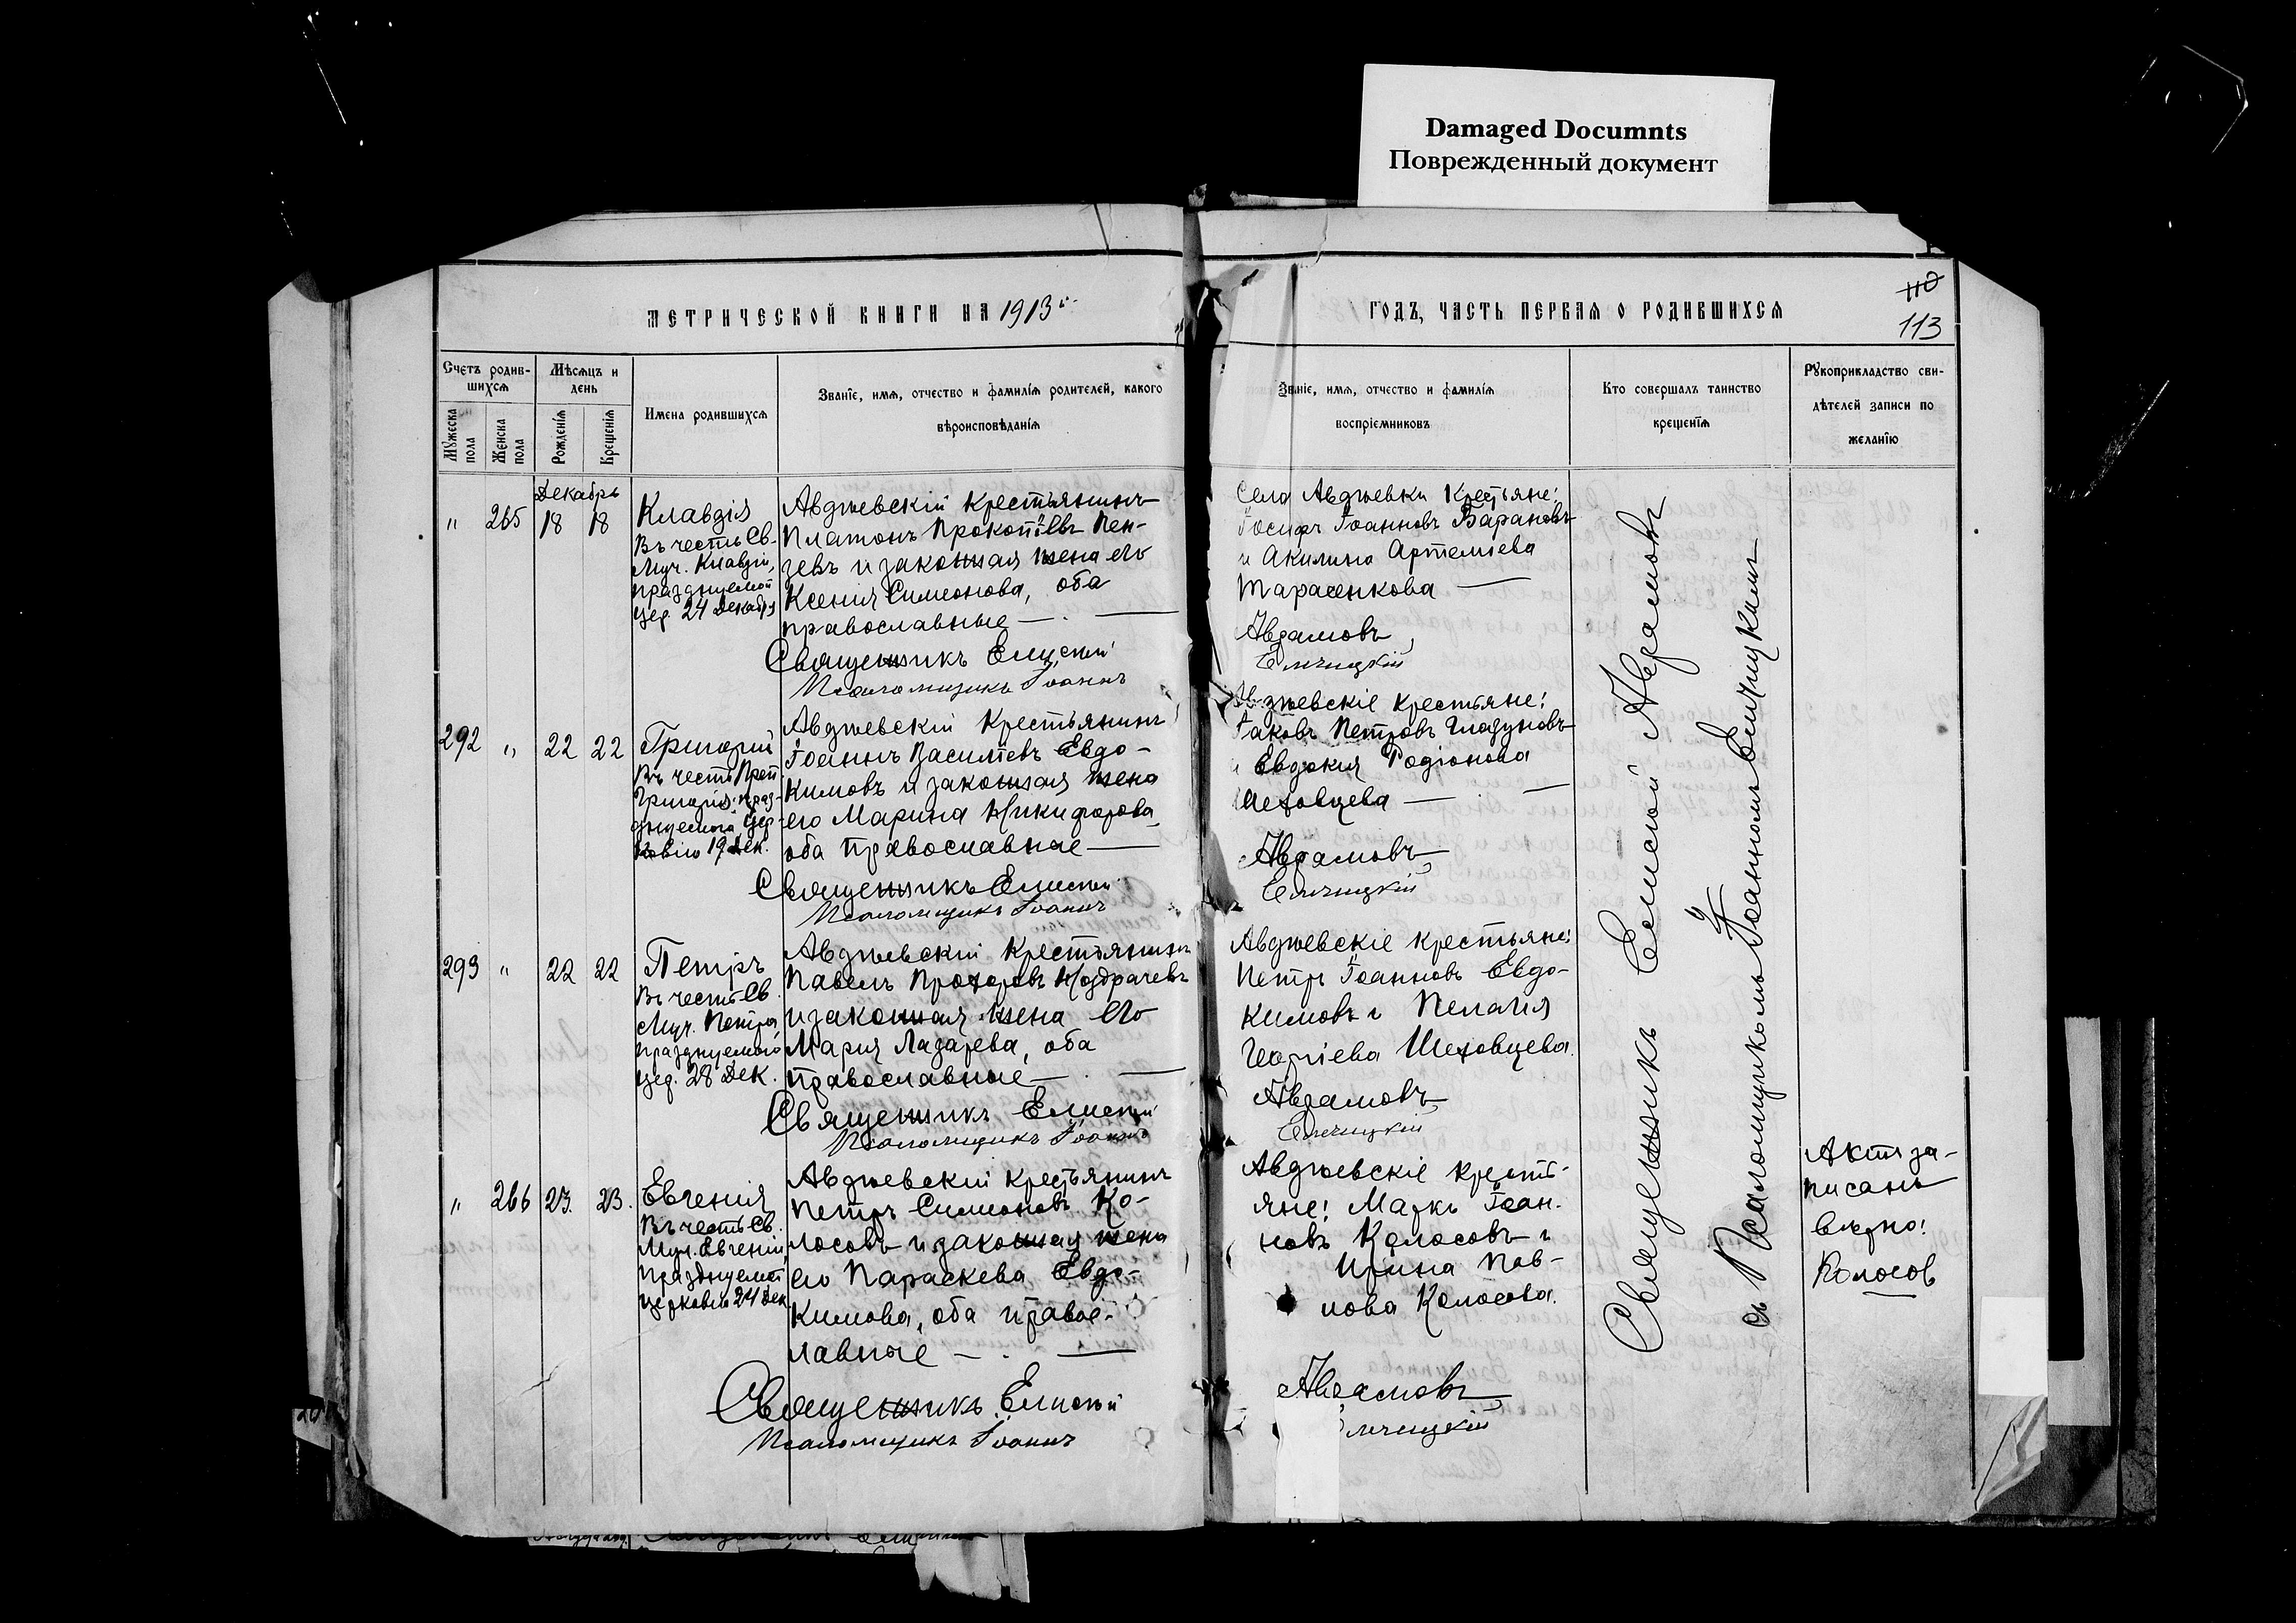 Damaged Documnts
Поврежденный документ
МЕТРИЧЕСКОЙ КНИГИ НА 1913й
ГОДЪ, ЧАСТЬ ПЕРВАЯ О РОДИВШИХСЯ
110
113
Счетъ родив-
шихся
Мѣсяцъ и
день
Мужеска
пола
Женска
пола
Рожденія
Крещенія
Имена родившихся
Званіе, имя, отчество и фамилія родителей, какого
вѣроисповѣданія
Званіе, имя, отчество и фамилія
воспріемниковъ
Кто совершалъ таинство
крещенія
Рукоприкладство сви-
дѣтелей записи по
желанію
Декабрь
" 265 18 18
Клавдія
Въ честь Св.
Муч. Клавдіи,
празднуемой
Цер. 24 Декабря
Авдѣевскій крестьянинъ
Платонъ Прокопіевъ Пен-
зевъ и законная жена его
Ксенія Симеонова, оба
православные —
Священникъ Елисей
Псаломщикъ Іоаннъ
Села Авдѣевки крестьяне:
Іосифъ Іоанновъ Барановъ
и Акилина Артеміева
Тарасенкова —
Авдамовъ
292 " 22 22
Григорій
Въ честь Преп.
Григорія праз-
днуемаго Цер-
ковію 19 Дек.
Авдѣевскій крестьянинъ
Іоаннъ Василіевъ Евдо-
кимовъ и законная жена
его Марина Никифорова
оба православные —
Священникъ Елисей
Псаломщикъ Іоаннъ
Авдѣевскіе крестьяне:
Іаковъ Петровъ Гладуновъ
и Евдокія Родіонова
Шеховцева —
Авдамовъ
293 " 22 22
Петръ
Въ честь Св.
Муч. Петра,
празднуемаго
Цер. 28 Дек.
Авдѣевскій крестьянинъ
Павелъ Прохоровъ Ноздрачевъ
и законная жена его
Марія Лазарева, оба
православные —
Священникъ Елисей
Псаломщикъ Іоаннъ
Авдѣевскіе крестьяне:
Петръ Іоанновъ Евдо-
кимовъ и Пелагія
Георгіева Шеховцева.
Авдамовъ
" 266 23. 23.
Евгенія
Въ честь Св.
Муч. Евгеніи,
празднуемой
Церковію 24 Дек.
Авдѣевскій крестьянинъ
Петръ Симеоновъ Ко-
лосовъ и законная жена
его Параскева Евдо-
кимова, оба правос-
лавные —
Священникъ Елисей
Псаломщикъ Іоаннъ
Авдѣевскіе кресть-
яне: Маркъ Іоан-
новъ Колосовъ и
Ирина Пав-
лова Колосова.
Авдамовъ
Священникъ Елисей Авдамовъ
съ Псаломщикомъ Іоанномъ
Актъ за-
писанъ
вѣрно!
Колосов